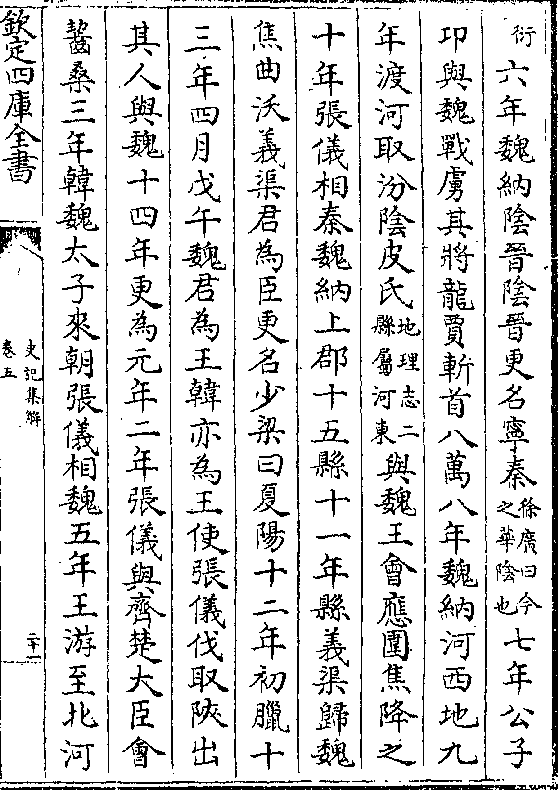 衍六年魏納陰晉陰晉更名寧秦徐廣曰今之華陰也七年公子
卬與魏戰虜其將龍賈斬首八萬八年魏納河西地九
年渡河取汾陰皮氏地理志二縣屬河東與魏王會應圍焦降之
十年張儀相秦魏納上郡十五縣十一年縣義渠歸魏
焦曲沃義渠君為臣更名少梁曰夏陽十二年初臘十
三年四月戊午魏君為王韓亦為王使張儀伐取陜出
其人與魏十四年更為元年二年張儀與齊楚大臣會
齧桑三年韓魏太子來朝張儀相魏五年王游至北河
欽定四庫全書
史記集解
卷五
二十一